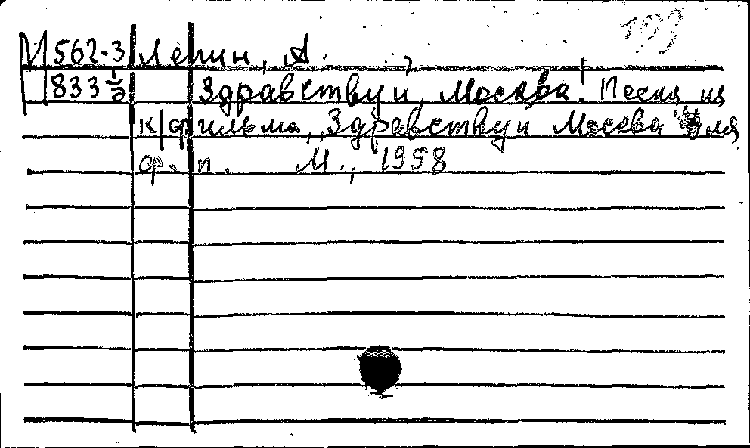 М 562-3 Лепин, А.
833 Здравствуй, Москва. Песня из
к/фильма „Здравствуй Москва" для
ф.-п. М., 1958